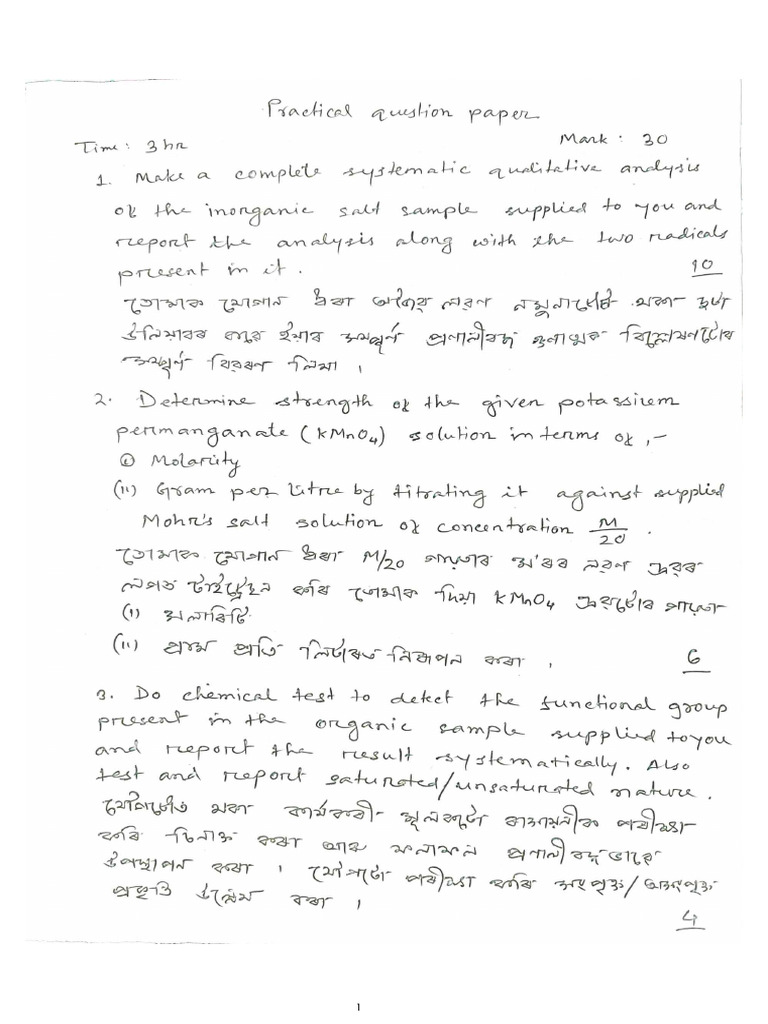 Practical question paper
Time: 3 hr Mark: 30
1. Make a complete systematic qualitative analysis
of the inorganic salt sample supplied to you and
report the analysis along with the two radicals
present in it. 10
তোমাক যোগান ধৰা অজৈৱ লৱণ নমুনাটোত থকা দুটা
উলিয়াবৰ বাবে ইয়াৰ সম্পূৰ্ণ প্ৰণালীবদ্ধ গুণাত্মক বিশ্লেষণটোৰ
সম্পূৰ্ণ বিৱৰণ লিখা ।
2. Determine strength of the given potassium
permanganate (KMnO4) solution in terms of,-
(i) Molarity
(ii) Gram per litre by titrating it against supplied
Mohr's salt solution of concentration M/20.
তোমাক যোগান ধৰা M/20 গাঢ়তাৰ ম'ৰৰ লৱণ দ্ৰৱৰ
লগত টাইট্ৰেচন কৰি তোমাক দিয়া KMnO4 দ্ৰৱটোৰ গাঢ়তা
(i) মলাৰিটি
(ii) গ্ৰাম প্ৰতি লিটাৰত নিৰূপন কৰা । 6
3. Do chemical test to detect the functional group
present in the organic sample supplied to you
and report the result systematically. Also
test and report saturated/unsaturated nature.
যৌগটোত থকা কাৰ্যকৰী মূলকটো ৰাসায়নীক পৰীক্ষা
কৰি চিনাক্ত কৰা আৰু ফলাফল প্ৰণালীবদ্ধভাৱে
উপস্থাপন কৰা । যৌগটো পৰীক্ষা কৰি সংপৃক্ত/অসংপৃক্ত
প্ৰকৃতি উল্লেখ কৰা ।
4
1